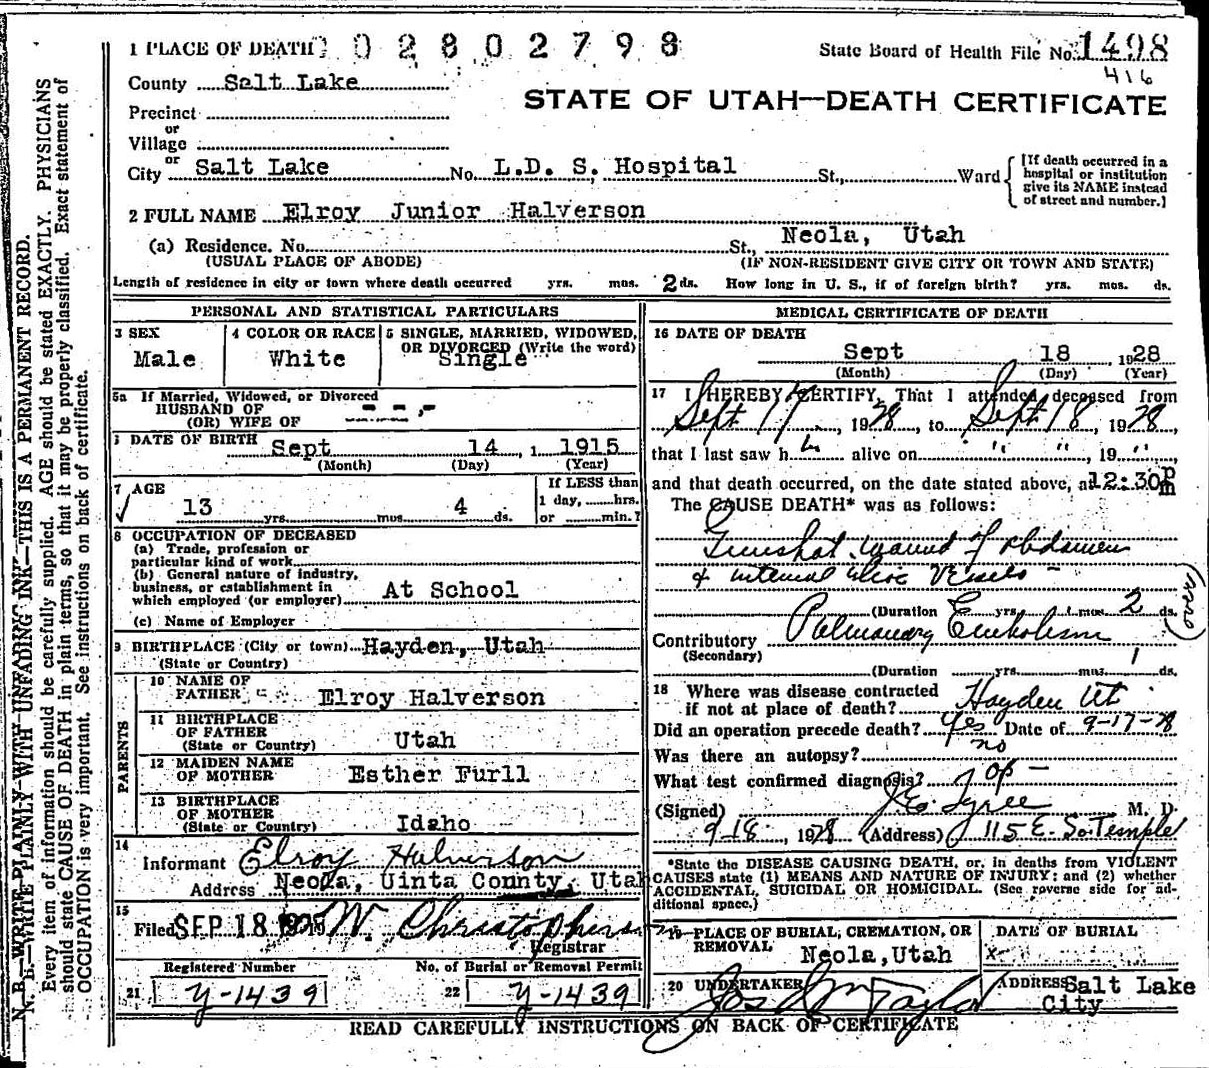 1 PLACE OF DEATH 0 2 8 0 2 7 9 8
State Board of Health File No. 1498
416
County Salt Lake
STATE OF UTAH—DEATH CERTIFICATE
Precinct
or
Village
or
City Salt Lake No. L.D. S. Hospital St., Ward
[If death occurred in a
hospital or institution
give its NAME instead
of street and number.]
2 FULL NAME Elroy Junior Halverson
(a) Residence. No. St., Neola, Utah
(USUAL PLACE OF ABODE) (IF NON-RESIDENT GIVE CITY OR TOWN AND STATE)
Length of residence in city or town where death occurred yrs. mos. 2 ds. How long in U. S., if of foreign birth? yrs. mos. ds.
PERSONAL AND STATISTICAL PARTICULARS
3 SEX
Male
4 COLOR OR RACE
White
5 SINGLE, MARRIED, WIDOWED,
OR DIVORCED (Write the word)
Single
5a If Married, Widowed, or Divorced
HUSBAND OF
(OR) WIFE OF
6 DATE OF BIRTH Sept 14, 1915
(Month) (Day) (Year)
7 AGE
13 yrs. mos. 4 ds.
If LESS than
1 day, hrs.
or min.?
8 OCCUPATION OF DECEASED
(a) Trade, profession or
particular kind of work
(b) General nature of industry,
business, or establishment in
which employed (or employer) At School
(c) Name of Employer
9 BIRTHPLACE (City or town) Hayden, Utah
(State or Country)
PARENTS
10 NAME OF
FATHER Elroy Halverson
11 BIRTHPLACE
OF FATHER
(State or Country) Utah
12 MAIDEN NAME
OF MOTHER Esther Furll
13 BIRTHPLACE
OF MOTHER
(State or Country) Idaho
14
Informant Elroy Halverson
Address Neola, Uinta County, Utah
15
Filed SEP 18 1928 W. Christopherson
Registrar
Registered Number
21 Y-1439
No. of Burial or Removal Permit
22 Y-1439
MEDICAL CERTIFICATE OF DEATH
16 DATE OF DEATH
Sept 18, 1928
(Month) (Day) (Year)
17 I HEREBY CERTIFY, That I attended deceased from
Sept 17, 1928, to Sept 18, 1928,
that I last saw h alive on " " , 19 "
and that death occurred, on the date stated above, at 12:30 pm
The CAUSE DEATH* was as follows:
Gunshot wound of abdomen
& internal iliac vessels -
(Duration yrs. mos. 2 ds.
Contributory Pulmonary Embolism
(Secondary)
(Duration yrs. mos. 1 ds.
18 Where was disease contracted
if not at place of death? Hayden Ut.
Did an operation precede death? Yes Date of 9-17-28
Was there an autopsy? no
What test confirmed diagnosis? Op -
(Signed) J.E. Tyree M. D.
9-18, 1928 (Address) 115 E. So. Temple
*State the DISEASE CAUSING DEATH, or, in deaths from VIOLENT
CAUSES state (1) MEANS AND NATURE OF INJURY: and (2) whether
ACCIDENTAL, SUICIDAL OR HOMICIDAL. (See reverse side for ad-
ditional space.)
19 PLACE OF BURIAL, CREMATION, OR
REMOVAL Neola, Utah
DATE OF BURIAL
x-
20 UNDERTAKER Jos Wm Taylor
ADDRESS Salt Lake
City
READ CAREFULLY INSTRUCTIONS ON BACK OF CERTIFICATE
N. B.—WRITE PLAINLY WITH UNFADING INK—THIS IS A PERMANENT RECORD.
Every item of information should be carefully supplied. AGE should be stated EXACTLY. PHYSICIANS
should state CAUSE OF DEATH in plain terms, so that it may be properly classified. Exact statement of
OCCUPATION is very important. See instructions on back of certificate.